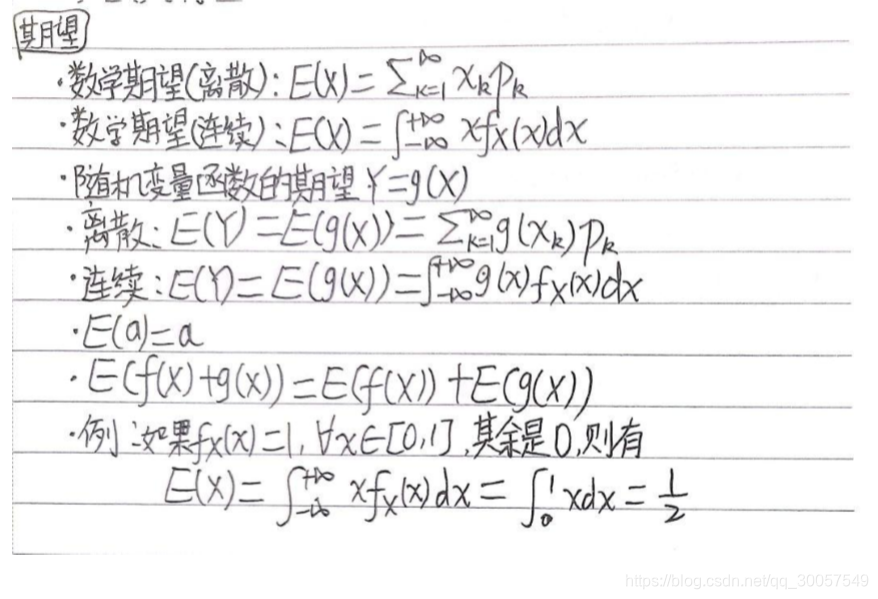 期望
·数学期望(离散):E(X)=∑_{k=1}^{∞} x_k p_k
·数学期望(连续):E(X)=∫_{-∞}^{+∞} x f_X(x)dx
·随机变量函数的期望 Y=g(X)
·离散:E(Y)=E(g(X))=∑_{k=1}^{∞} g(x_k) p_k
·连续:E(Y)=E(g(X))=∫_{-∞}^{+∞} g(x) f_X(x)dx
·E(a)=a
·E(f(X)+g(X))=E(f(X))+E(g(X))
·例:如果f_X(x)=1,∀x∈[0,1],其余是0,则有
E(X)=∫_{-∞}^{+∞} x f_X(x)dx=∫_0^1 xdx=1/2
https://blog.csdn.net/qq_30057549